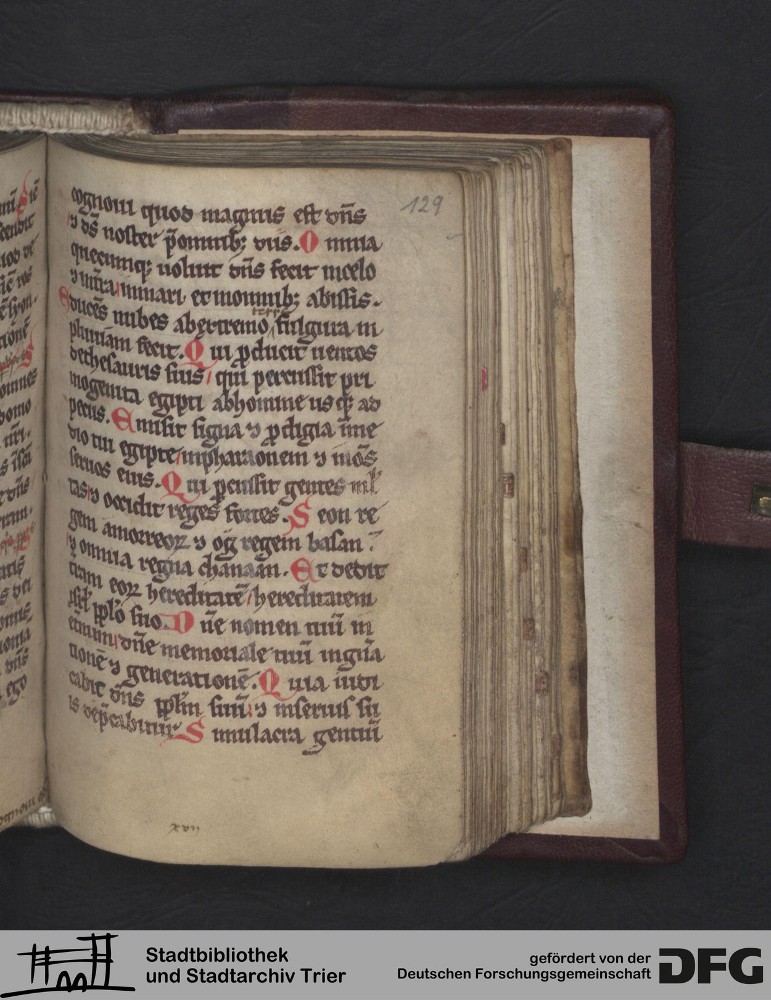 129
cognoui quod magnus est dn̄s
⁊ ds̄ noster p̄ omnib; diis. O mnia
quecumq; uoluit dn̄s fecit in celo
⁊ in t̄ra / in mari et in omnib; abissis.
E ducēs nubes ab extremo terre fulgura in
pluuiam fecit. Q ui ꝓducit uentos
de thesauris suis / qui percussit pri
mogenita egipti ab homine usq; ad
pecus. E misit signa ⁊ ꝓdigia ī me
dio tui egipte / in pharaonem ⁊ in om̄s
seruos eius. Q ui ꝑcussit gentes ml̄
tas / ⁊ occidit reges fortes. S eon re
gem amorreoꝝ ⁊ og regem basan
⁊ omnia regna chanaan. E t dedit
terram eoꝝ hereditatē / hereditatem
isrl̄ pp̄lo suo. D n̄e nomen tuū in
et̄num / dn̄e memoriale tuū in gn̄a
tionē ⁊ generationē. Q uia iudi
cabit dn̄s pp̄lm suū / ⁊ in seruis su
is dep̄cabitur. S imulacra gentiū
xvii
Stadtbibliothek
und Stadtarchiv Trier
gefördert von der
Deutschen Forschungsgemeinschaft
DFG